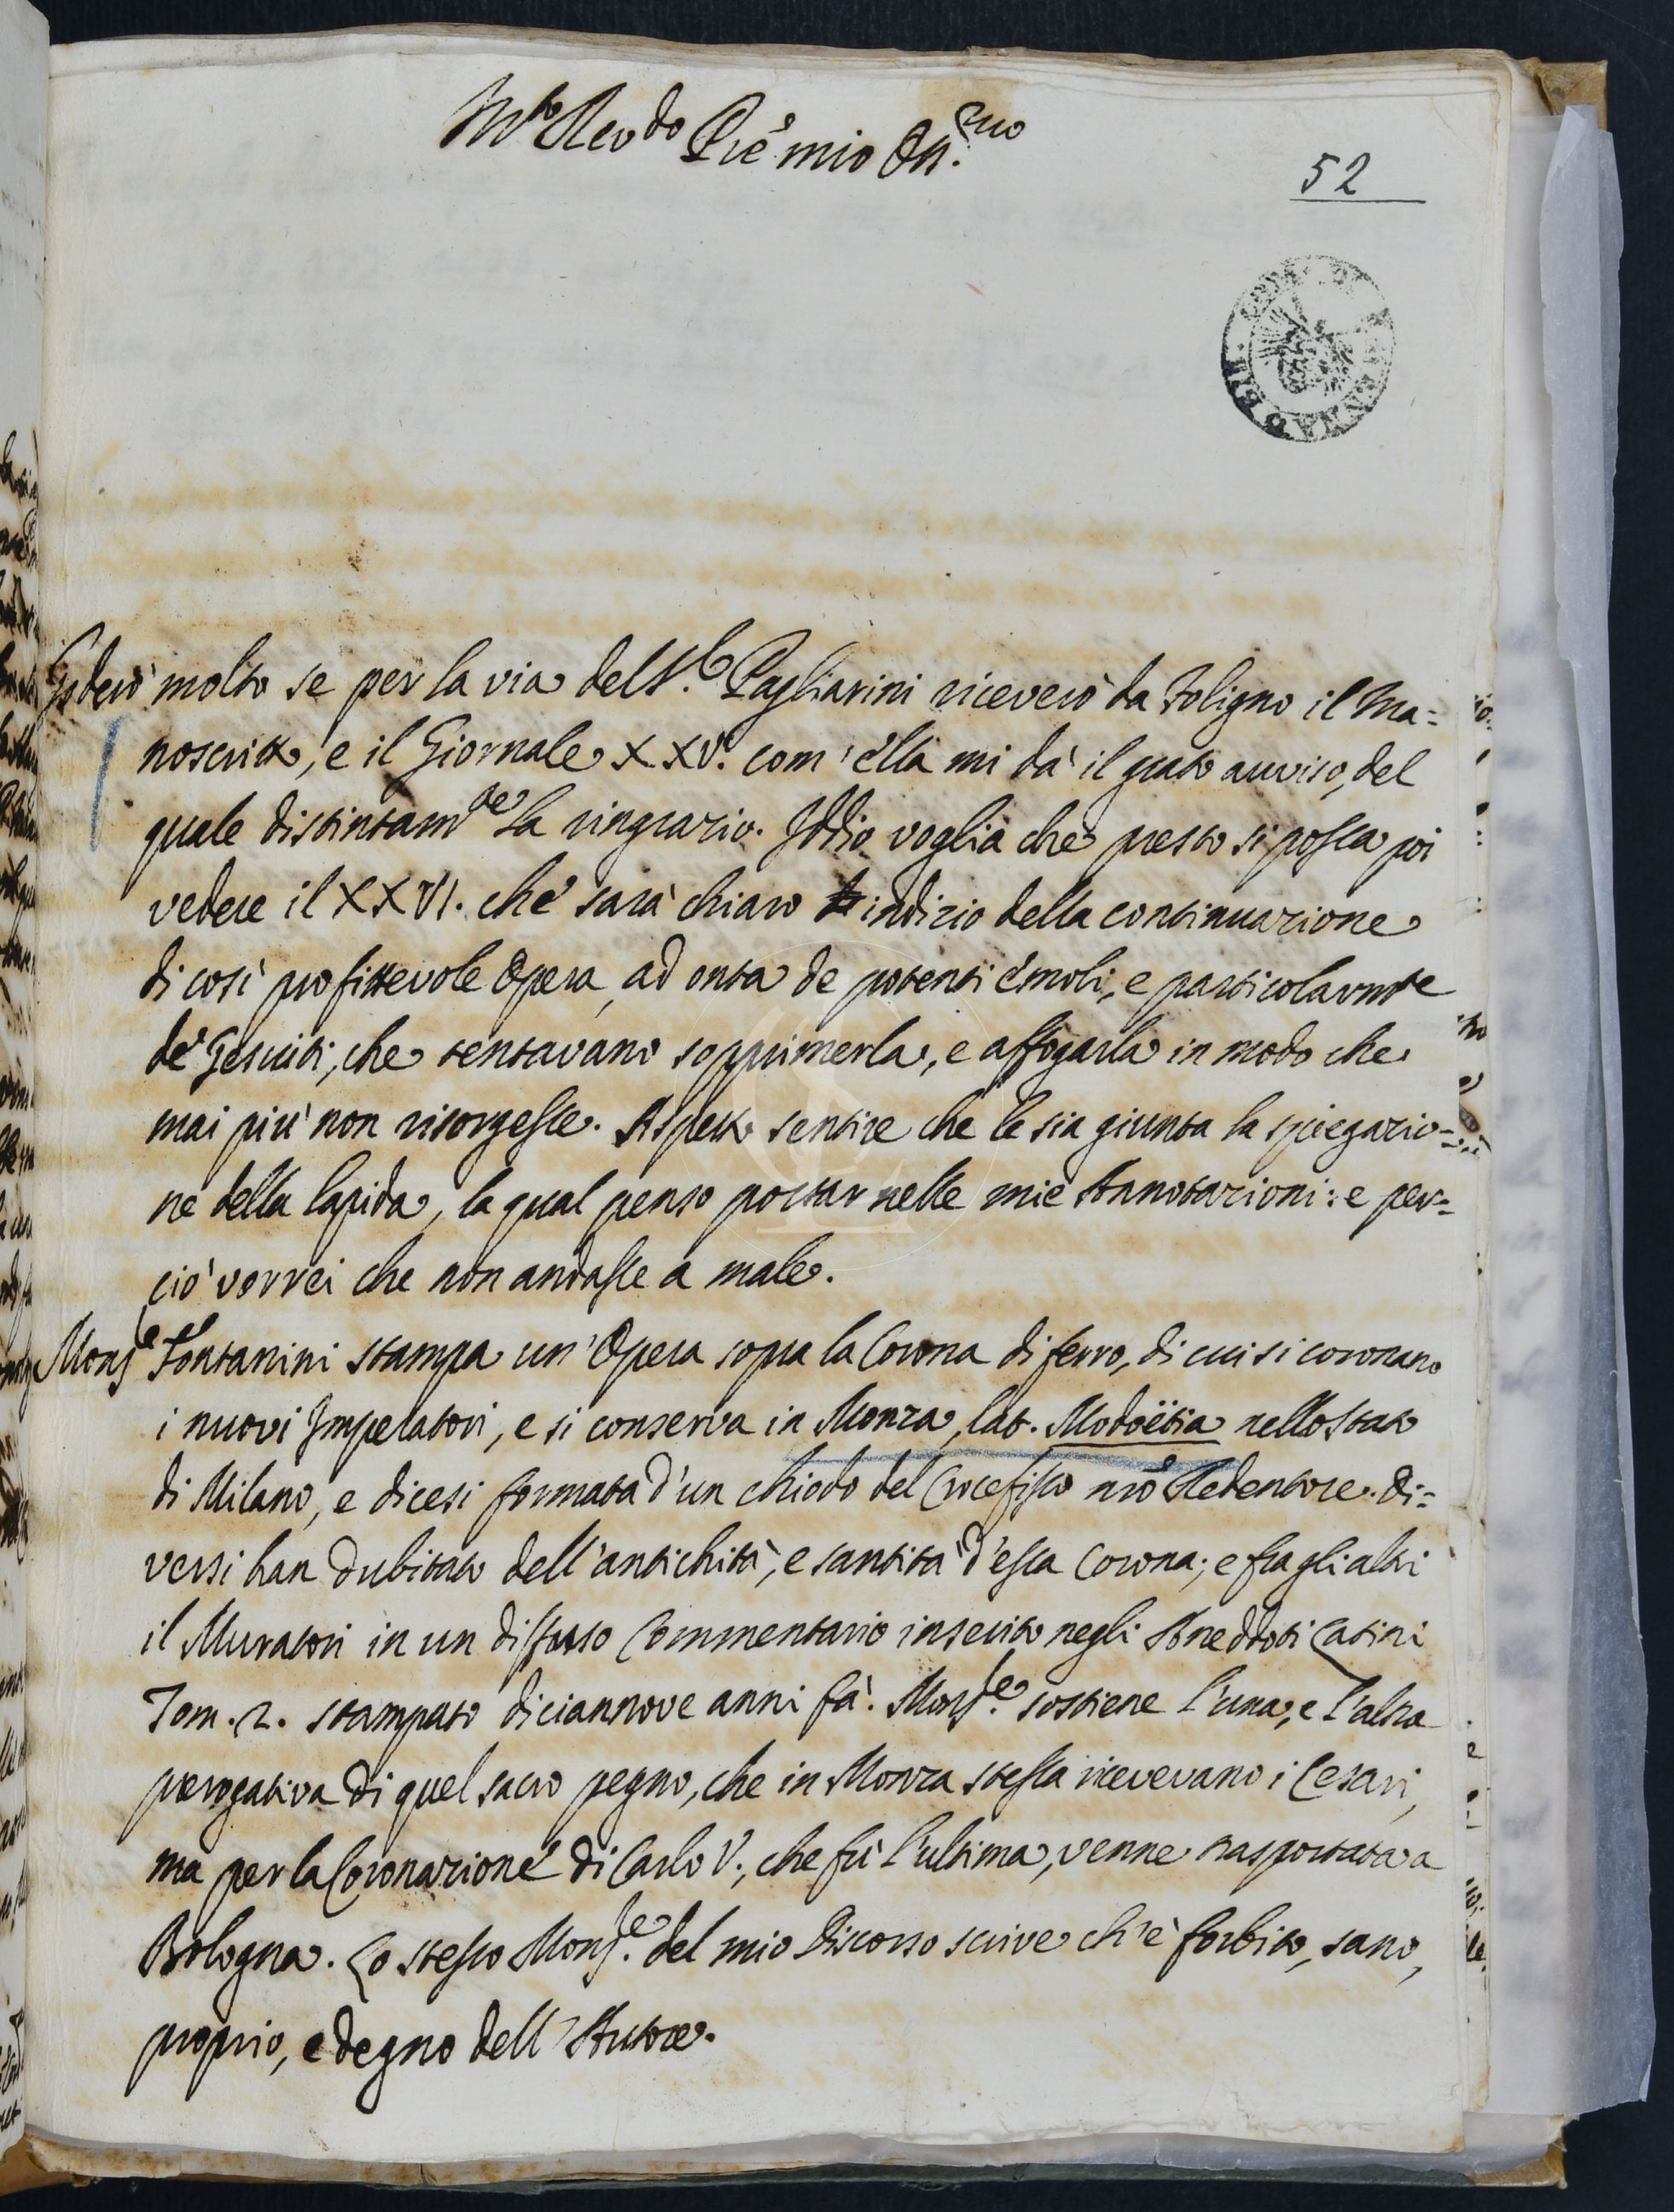 M.to Rev.do P̃re mio Oss.mo
52
Goderò molto se per la via del S.r Pagliarini riceverò da Foligno il Ma=
noscritto, e il Giornale XXV. com'ella mi dà il grato avviso, del
quale distintam.te La ringrazio. Iddio voglia che presto si possa poi
vedere il XXVI. che sarà chiaro indizio della continuazione
di così profittevole Opera, ad onta de potenti émoli, e particolarmte
de' Gesuiti, che tentavano sopprimerla, e affogarla in modo che
mai più non risorgesse. Aspetto sentire che le sia giunta la spiegazio=
ne della lapida, la qual penso portar nelle mie Annotazioni: e per=
ciò vorrei che non andasse a male.
Mons.re Fontanini stampa un'Opera sopra la Corona di ferro, di cui si coronano
i nuovi Imperatori, e si conserva in Monza, lat. Modoëtia nello Stato
di Milano, e dicesi formata d'un chiodo del Crocefisso nrõ Redentore. Di=
versi han dubitato dell'antichità, e santità d'essa Corona; e fra gli altri
il Muratori in un diffuso Commentario inserito negli Aneddoti Latini
Tom. 2. stampato diciannove anni fà. Mons.re sostiene l'una, e l'altra
prerogativa di quel sacro pegno, che in Monza stessa ricevevano i Cesari,
ma per la Coronazione di Carlo V., che fù l'ultima, venne trasportata a
Bologna. Lo stesso Mons.re del mio Discorso scrive ch'è forbito, sano,
proprio, e degno dell'Autore.